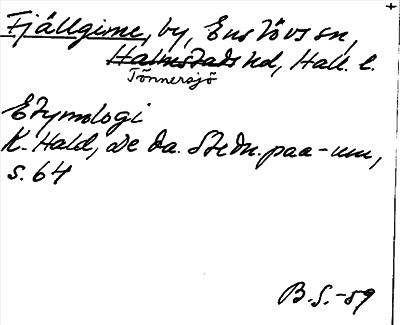 Fjällgime, by, Enslövs sn,
Halmstads hd, Hall. l.
Tönnersjö
Etymologi
K. Hald, De da. Stedn. paa -um,
s. 64
B.S. -59